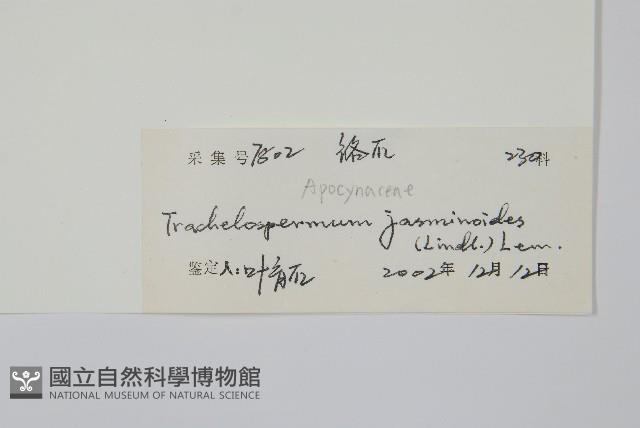 采集号 7502 络石 230科
Apocynacene
Trachelospermum jasminoides
(Lindl.) Lem.
鉴定人: 叶育石 2002年 12月 12日
國立自然科學博物館
NATIONAL MUSEUM OF NATURAL SCIENCE